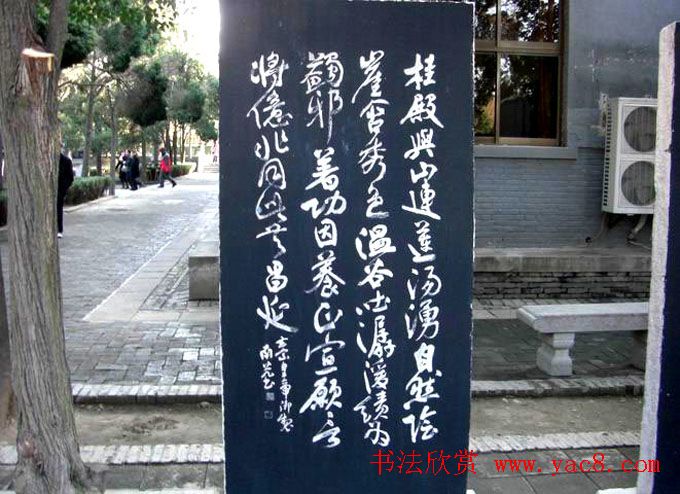 桂殿與山連蘭汤湧自然陰
崖含秀色温谷吐潺湲績為
蠲邪著功因養正宣願言
將億兆同此共昌延
皇帝御製
书法欣赏 www.yac8.com